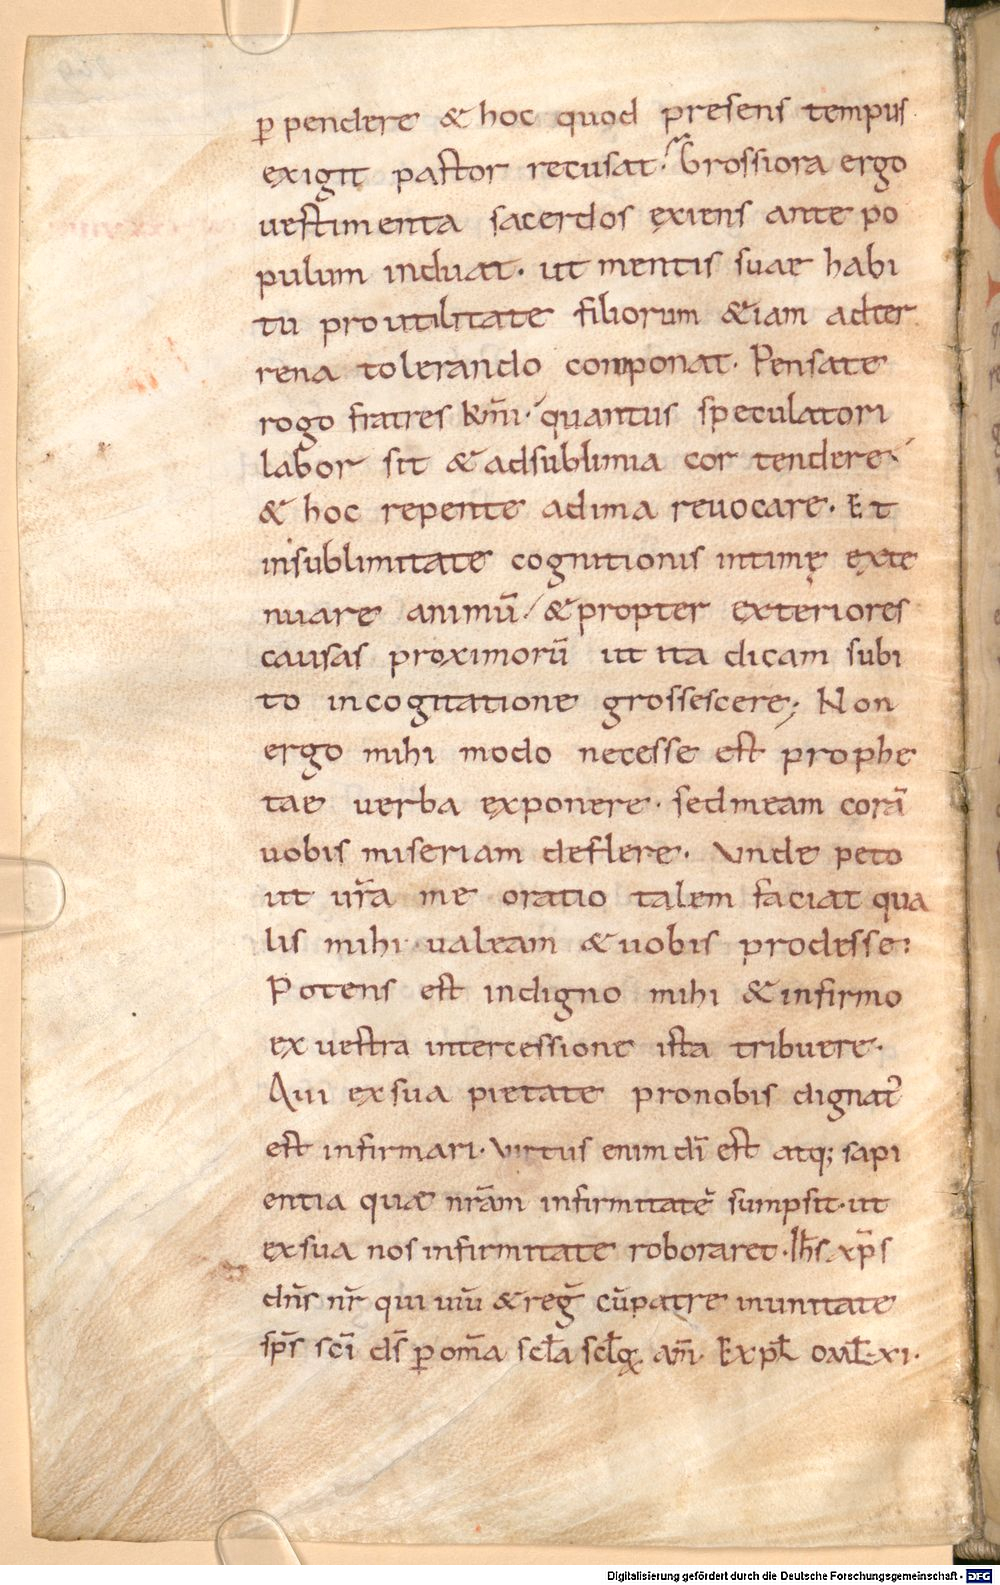 ꝑpendere & hoc quod presens tempus
exigit pastor recusat. Grossiora ergo
uestimenta sacerdos exiens ante po
pulum induat. ut mentis suae habi
tu pro utilitate filiorum &iam adter
rena tolerando componat. Pensate
rogo fratres km̄i. quantus speculatori
labor sit & adsublimia cor tendere
& hoc repente adima reuocare. Et
insublimitate cognitionis intimę exte
nuare animū / & propter exteriores
causas proximorū ut ita dicam subi
to incogitatione grossescere; Non
ergo mihi modo necesse est prophe
tae uerba exponere. sed meam corā
uobis miseriam deflere. Vnde peto
ut ur̄a me oratio talem faciat qua
lis mihi ualeam & uobis prodesse:
Potens est indigno mihi & infirmo
ex uestra intercessione ista tribuere.
Qui exsua pietate pronobis dignat᷑
est infirmari. Virtus enim dī est atq; sapi
entia quae nr̄am infirmitatē sumpsit. ut
exsua nos infirmitate roboraret. Ih̄s xp̄s
dn̄s nr̄ qui uiū & reḡ cū patre inunitate
sp̄s sc̄i ds̄ ꝑ om̄a scl̄a scl̄oꝝ am̄. Expl̄ oml̄. xi.
Digitalisierung gefördert durch die Deutsche Forschungsgemeinschaft - DFG